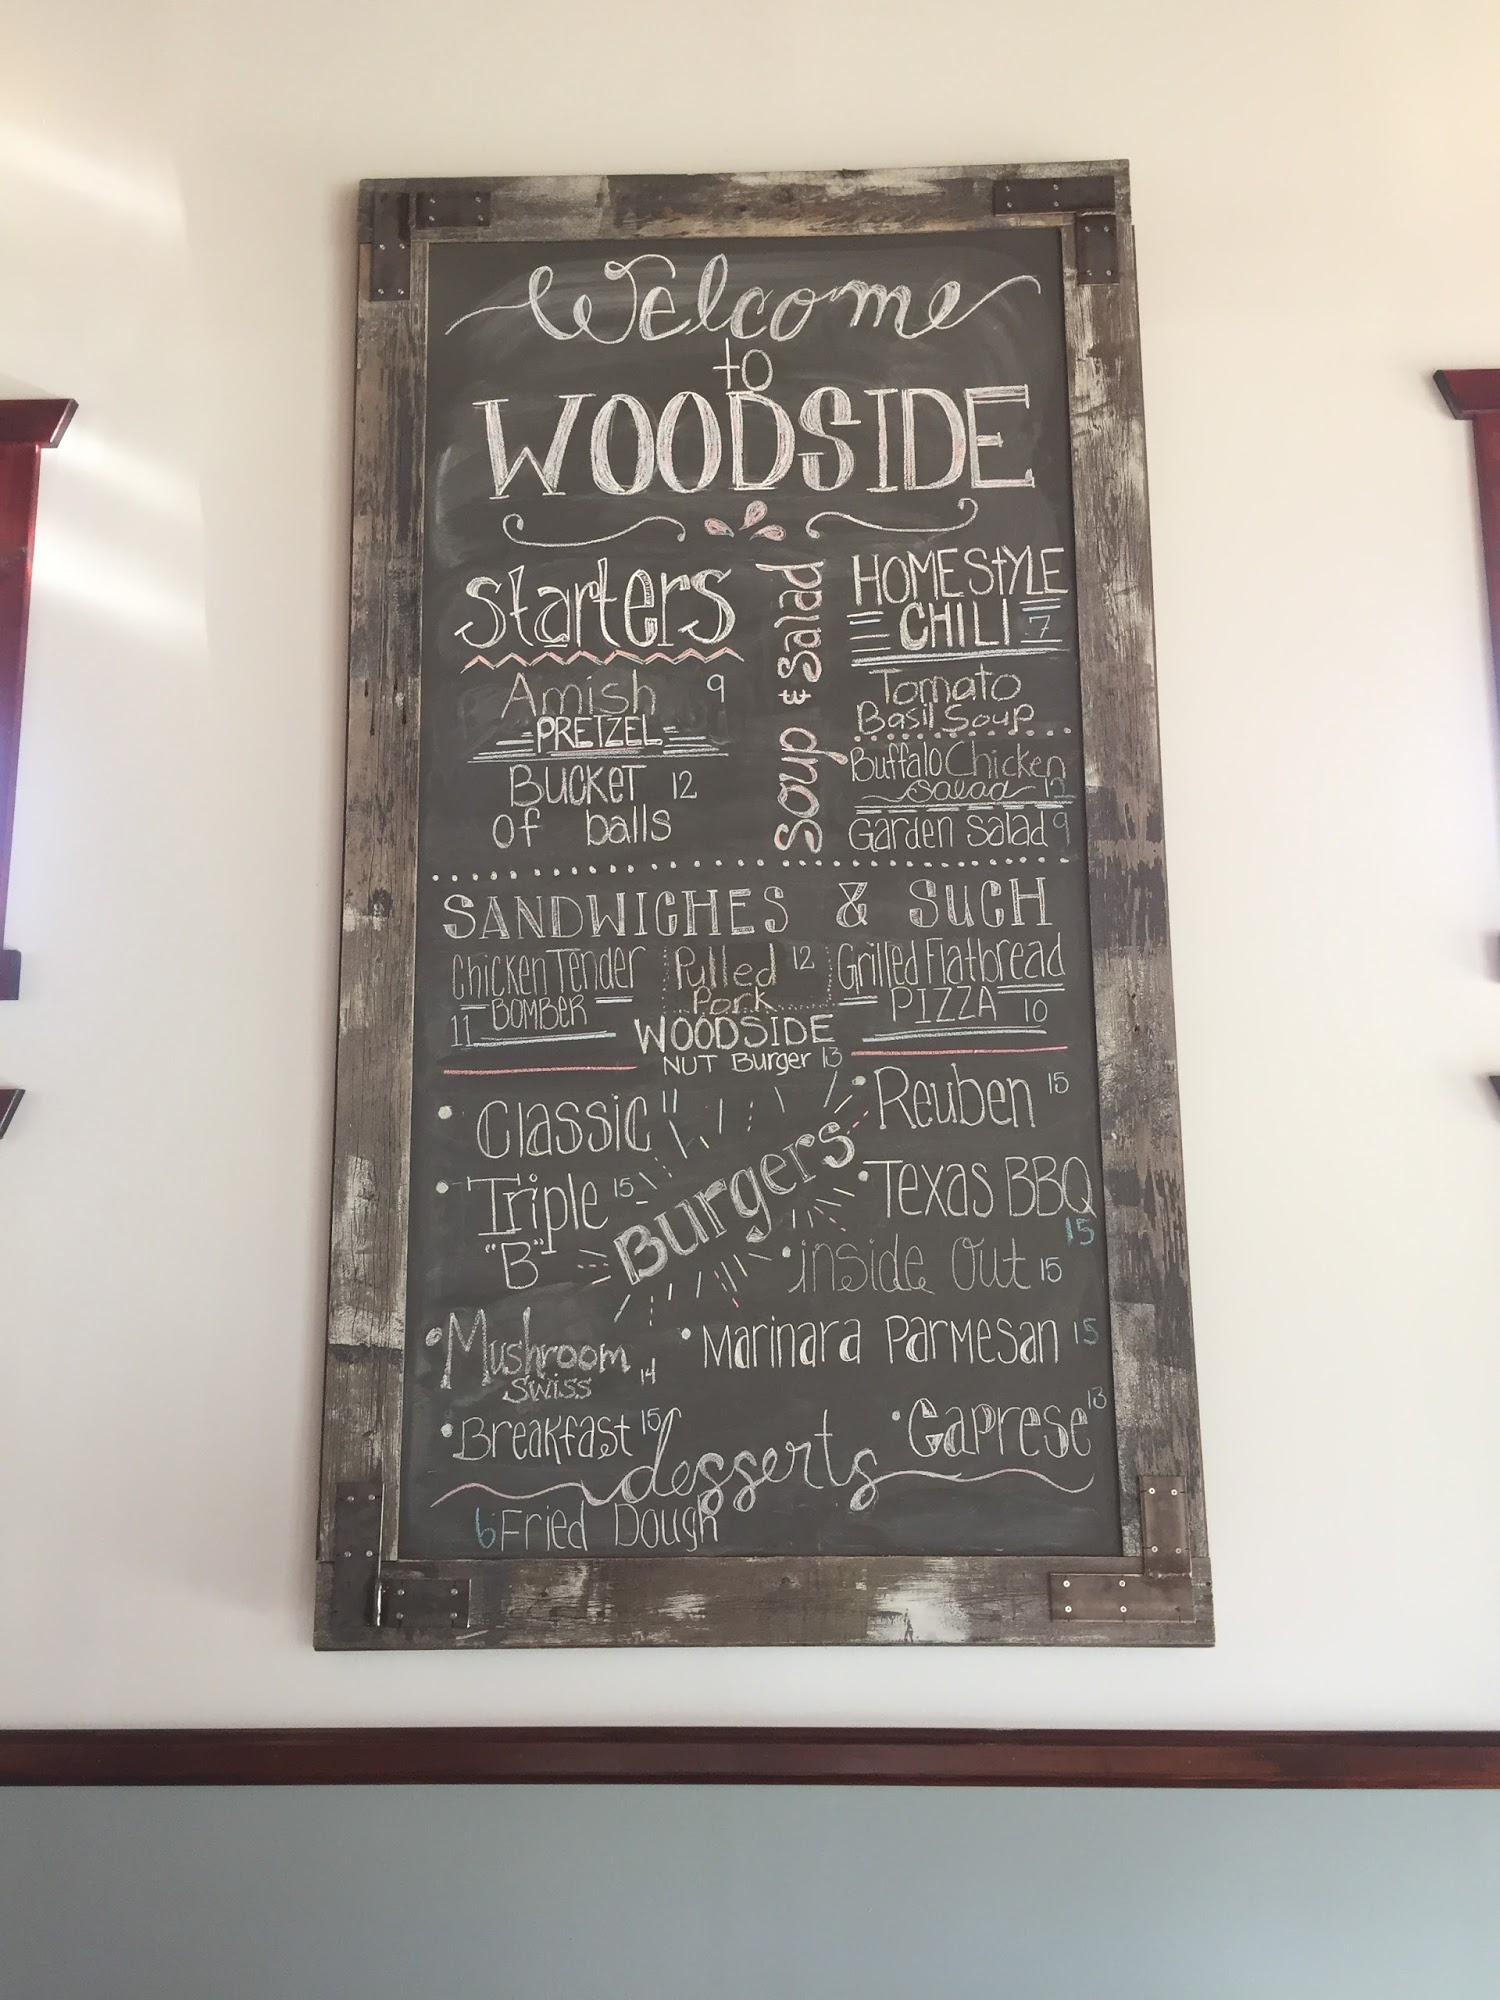 Welcome
to
WOODSIDE
Starters
Amish 9
PRETZEL
Bucket 12
of balls
Soup & Salad
HOMESTYLE
CHILI 7
Tomato
Basil Soup
Buffalo Chicken
Salad 13
Garden Salad 9
SANDWICHES & SUCH
Chicken Tender
11 BOMBER
Pulled 12
Pork
Grilled Flatbread
PIZZA 10
WOODSIDE
NUT Burger 13
Burgers
• Classic 11
• Triple 15
"B"
• Mushroom
Swiss 14
• Breakfast 15
• Reuben 15
• Texas BBQ
15
• inside Out 15
• Marinara Parmesan 15
• Caprese 13
desserts
6 Fried Dough